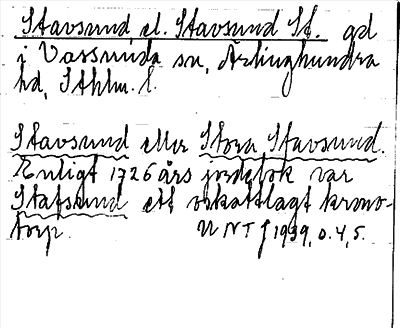 Stavsund el. Stavsund St. gd
i Vassunda sn, Ärlinghundra
hd, Sthlm. l.
Stavsund eller Stora Stavsund.
Enligt 1726 års jordebok var
Stafsund ett oskattlagt krono-
torp. UNT 1939, 0.4,5.